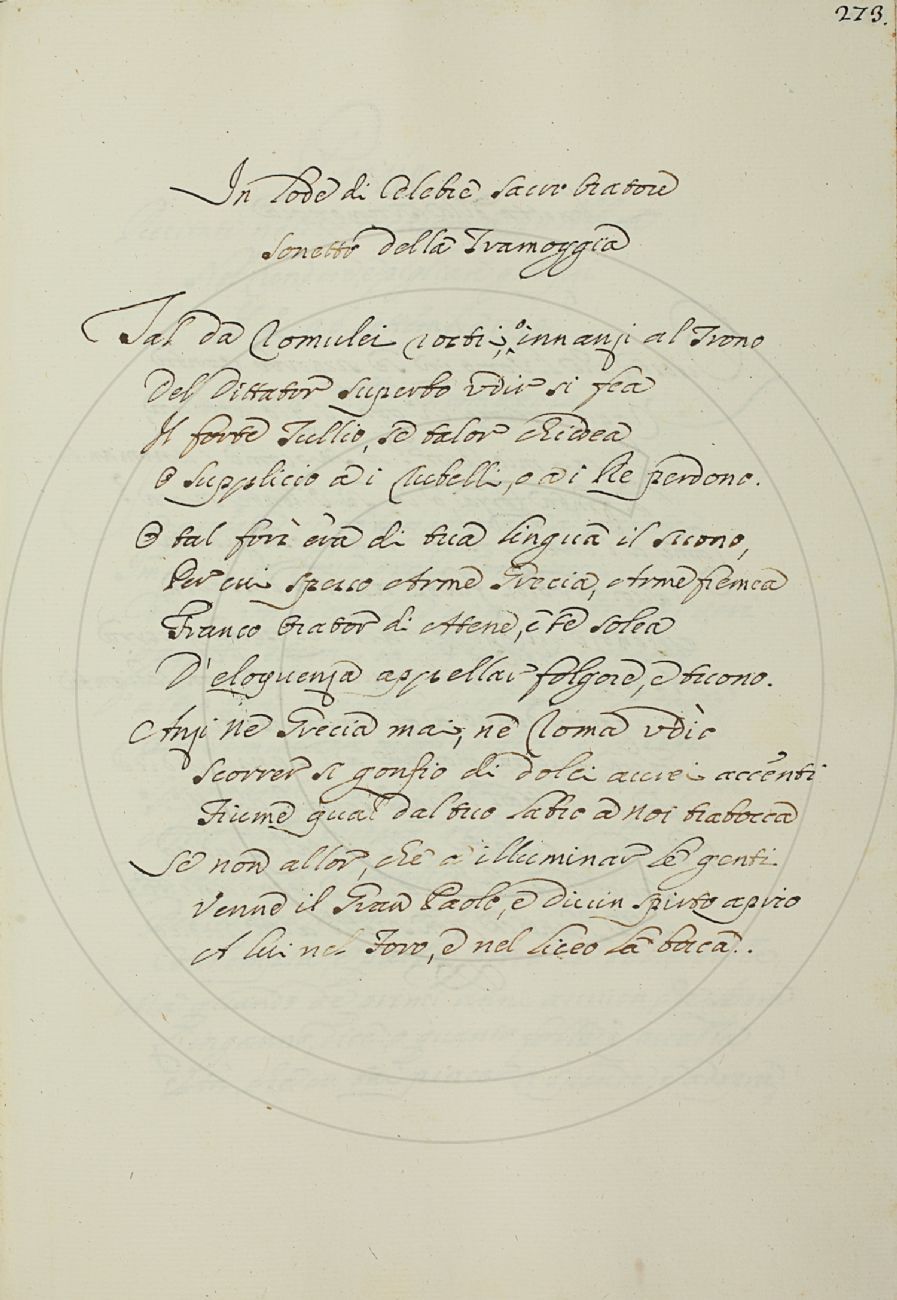 273.
In lode di Celebre Sacro Oratore
Sonetto della Tramoggia
Tal da Romulei rostri, ò innanzi al Trono
Del Dittator superbo udir si fea
Il forte Tullio, se talor chiedea
O supplicio a i Rubelli, o a i Re perdono.
O tal fors' era di tua lingua il suono,
Per cui spesso Arme Grecia, Arme fremea
Franco Orator di Atene, e te solea
D'eloquenza appellar folgore, e tuono.
Anzi Ne Grecia mai, ne Roma udìo
Scorrer sì gonfio di dolci aurei accenti
Fiume qual dal tuo labro a noi trabocca
Se non allor, che a illuminar le genti
Venne il Gran Paolo, e divin spirto aprio
A lui nel Foro, e nel Liceo la bocca.